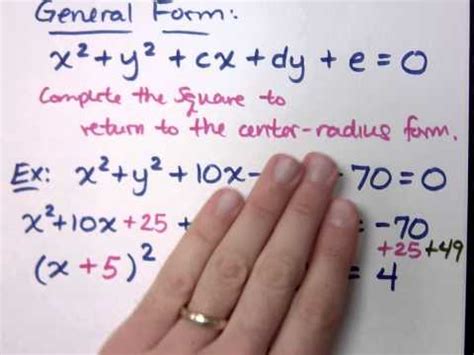 General Form:
x² + y² + cx + dy + e = 0
Complete the square to
return to the center-radius form.
Ex: x² + y² + 10x - 70 = 0
x² + 10x + 25 + = -70
+25 +49
(x + 5)² = 4